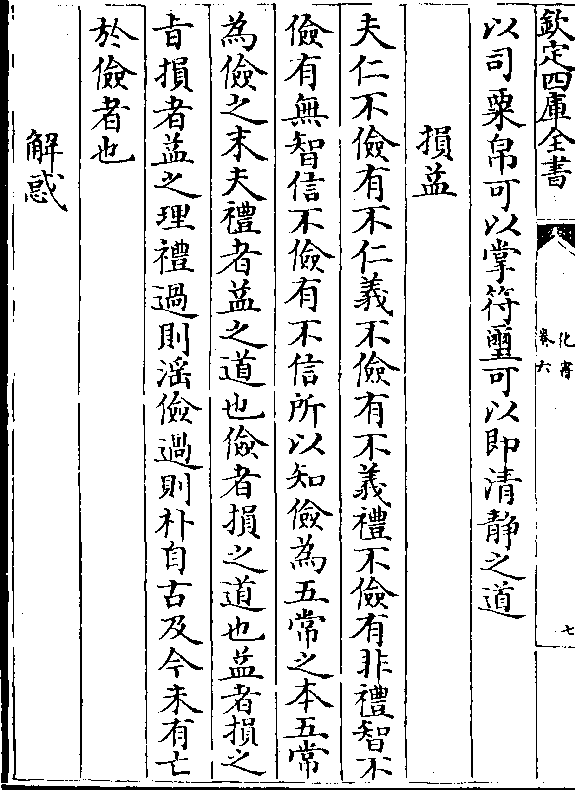 欽定四庫全書
化書
卷六
七
以司粟帛可以掌符璽可以即清静之道
損益
夫仁不儉有不仁義不儉有不義禮不儉有非禮智不
儉有無智信不儉有不信所以知儉為五常之本五常
為儉之末夫禮者益之道也儉者損之道也益者損之
旨損者益之理禮過則滛儉過則朴自古及今未有亡
於儉者也
解惑